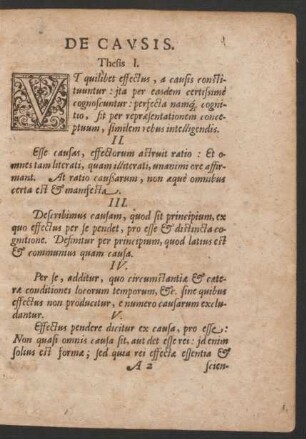 DE CAVSIS.
Thesis I.
VT quilibet effectus, a causis consti-
tuuntur: ita per easdem certissimè
cognoscuntur: perfecta namq; cogni-
tio, fit per repræsentationem conce-
ptuum, similem rebus intelligendis.
II.
Esse causas, effectorum astruit ratio: Et o-
mnes tam literati, quam illiterati, unanimi ore affir-
mant. At ratio caußarum, non æquè omnibus
certa est & manifesta.
III.
Describimus causam, quod sit principium, ex
quo effectus per se pendet, pro esse & distincta co-
gnitione. Definitur per principium, quod latius est
& communius quam causa.
IV.
Per se, additur, quo circumstantiæ & cæte-
ræ conditiones locorum temporum, &c. sine quibus
effectus non producitur, e numero causarum exclu-
dantur.
V.
Effectus pendere dicitur ex causa, pro esse:
Non quasi omnis causa sit, aut det esse rei: id enim
solius est formæ; sed quia rei effectæ essentia &
A 2 scien-